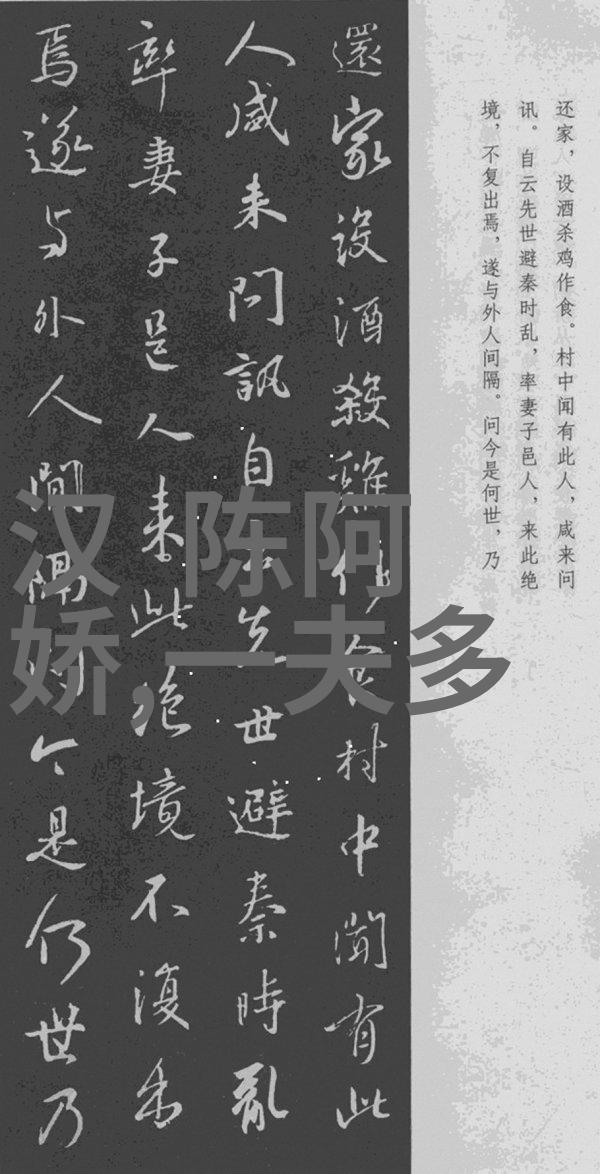 还家，设酒杀鸡作食。村中闻有此人，咸来问
讯。自云先世避秦时乱，率妻子邑人，来此绝
境，不复出焉，遂与外人间隔。问今是何世，乃
還家設酒殺雞作食村中聞有此
人咸来問訊自云先世避秦時亂
率妻子邑人来此絶境不復出
焉遂与外人間隔問今是何世乃
汉 陈阿
娇,一夫多